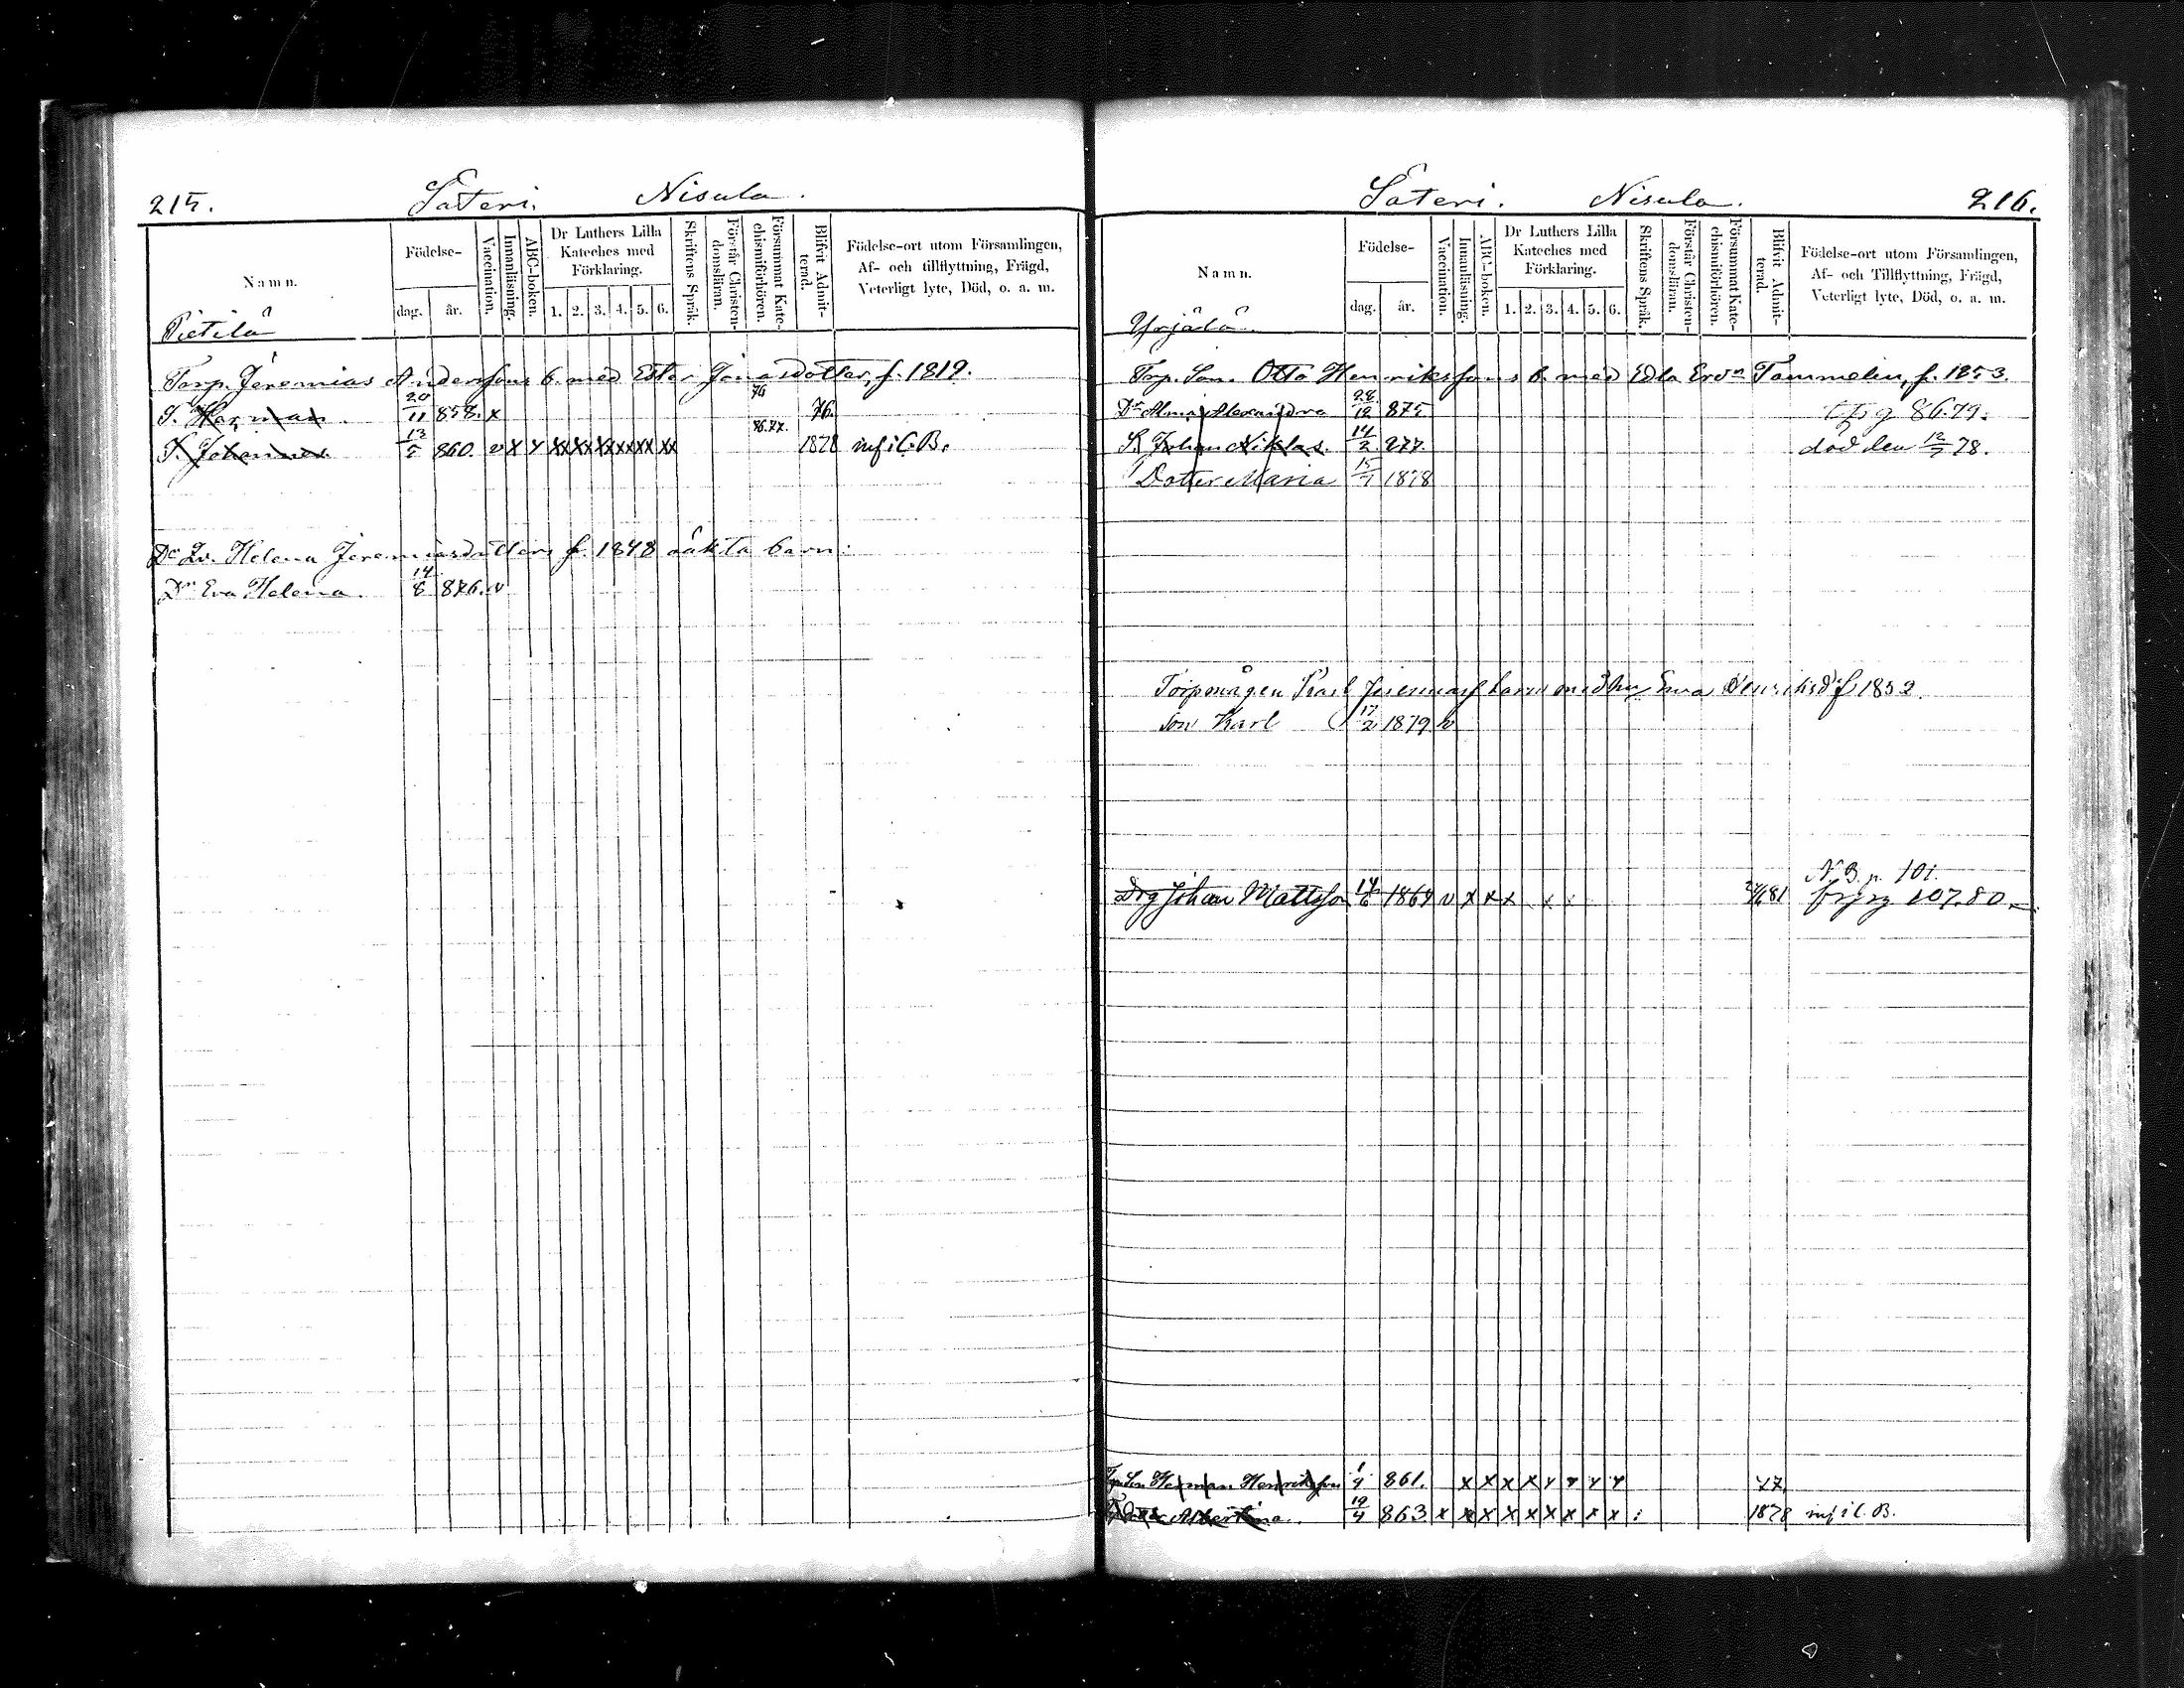 215. Säteri. Nisula.
Namn.
Födelse-
dag. år.
Vaccination.
Innanläsning.
ABC-boken.
Dr Luthers Lilla Kateches med Förklaring.
1. 2. 3. 4. 5. 6.
Skriftens Språk.
Förstår Christendomsläran.
Försummat Katechismiförhören.
Blifvit Admitterad.
Födelse-ort utom Församlingen,
Af- och tillflyttning, Frägd,
Veterligt lyte, Död, o. a. m.
Pietilä
Torp. Jeremias Anderssons b. med Ester Jonasdotter, f. 1819.
S. Herman 20/11 858. x 74 76.
S. Johannes 13/5 860 v x y xx xx xx xx xx xx 76.77. 1878 inf i C. B.
Dr Lv. Helena Jeremiasdotters f. 1848 oäkta barn:
Dr Eva Helena. 14/8 876. v
Säteri. Nisula. 216.
Namn.
Födelse-
dag. år.
Vaccination.
Innanläsning.
ABC-boken.
Dr Luthers Lilla Kateches med Förklaring.
1. 2. 3. 4. 5. 6.
Skriftens Språk.
Förstår Christendomsläran.
Försummat Katechismiförhören.
Blifvit Admitterad.
Födelse-ort utom Församlingen,
Af- och Tillflyttning, Frägd,
Veterligt lyte, Död, o. a. m.
Yrjälä
Torp. Son. Otto Henrikssons b. med Edla Tammelin, f. 1853.
Dr Alma Alexandra 28/12 875 86.79.
S. Johan Niklas. 14/2 877. död den 12/7 78.
Dotter Maria 15/7 1878
Torpmågen Karl Jeremiass barn med Eva Henriksd. f. 1852.
Son Karl 17/2 1879 v
N. B. p. 101.
Drg Johan Mattsson 14/6 1864 v x x x x 81 107.80.
Son Herman Henriksson 1/4 861. x x x x y y y y 77.
Albertina. 19/4 863 x x x x x x x x x 1878 inf i C. B.